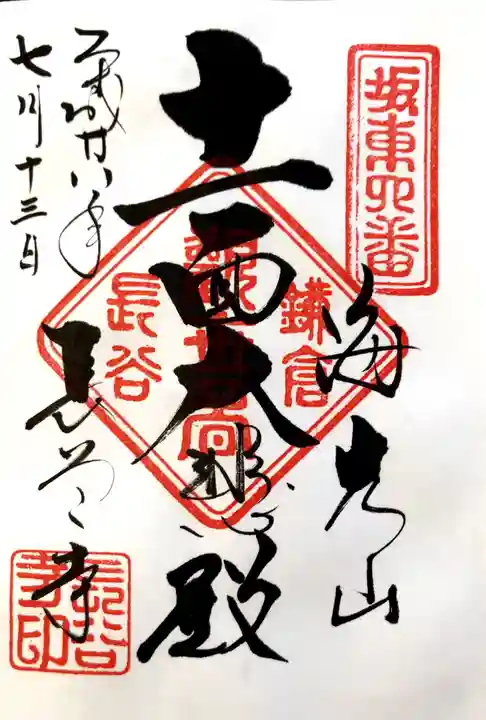 坂東四番
海光山
十一面大悲殿
鎌倉
観世音
長谷
平成廿八年
七月十三日
長谷寺
長谷寺印